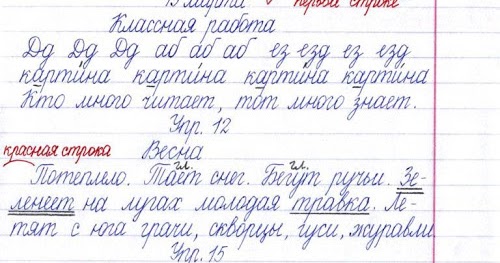 15 марта первой строке
Классная работа
Дд Дд Дд аб аб аб ез езд ез езд
картина картина картина картина
Кто много читает, тот много знает.
Упр. 12
красная строка Весна
гл. гл.
Потеплело. Тает снег. Бегут ручьи. Зе-
ленеет на лугах молодая травка. Ле-
тят с юга грачи, скворцы, гуси, журавли
Упр. 15